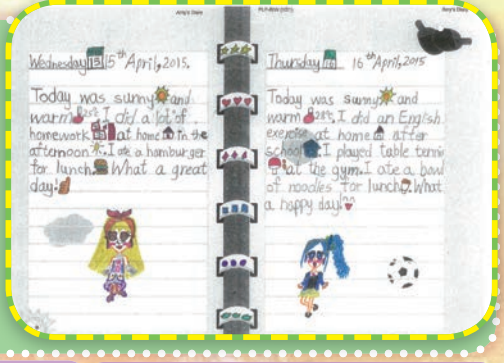 Amy's Diary
Wednesday 15 15th April, 2015.
Today was sunny and
warm 25℃. I did a lot of
homework at home in the
afternoon. I ate a hamburger
for lunch. What a great
day!
Amy's Diary
Thursday 16 16th April, 2015
Today was sunny and
warm 28℃. I did an English
exercise at home after
school. I played table tennis
at the gym. I ate a bowl
of noodles for lunch. What
a happy day!